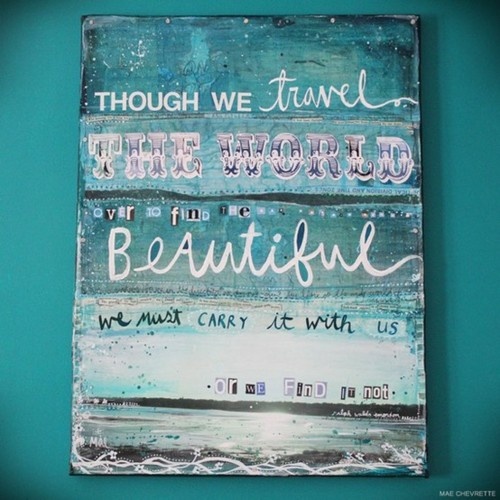 THOUGH WE travel
THE WORLD
OVER TO find THE
Beautiful
we must CARRY it with us
or we find it not
ralph waldo emerson
MAE CHEVRETTE